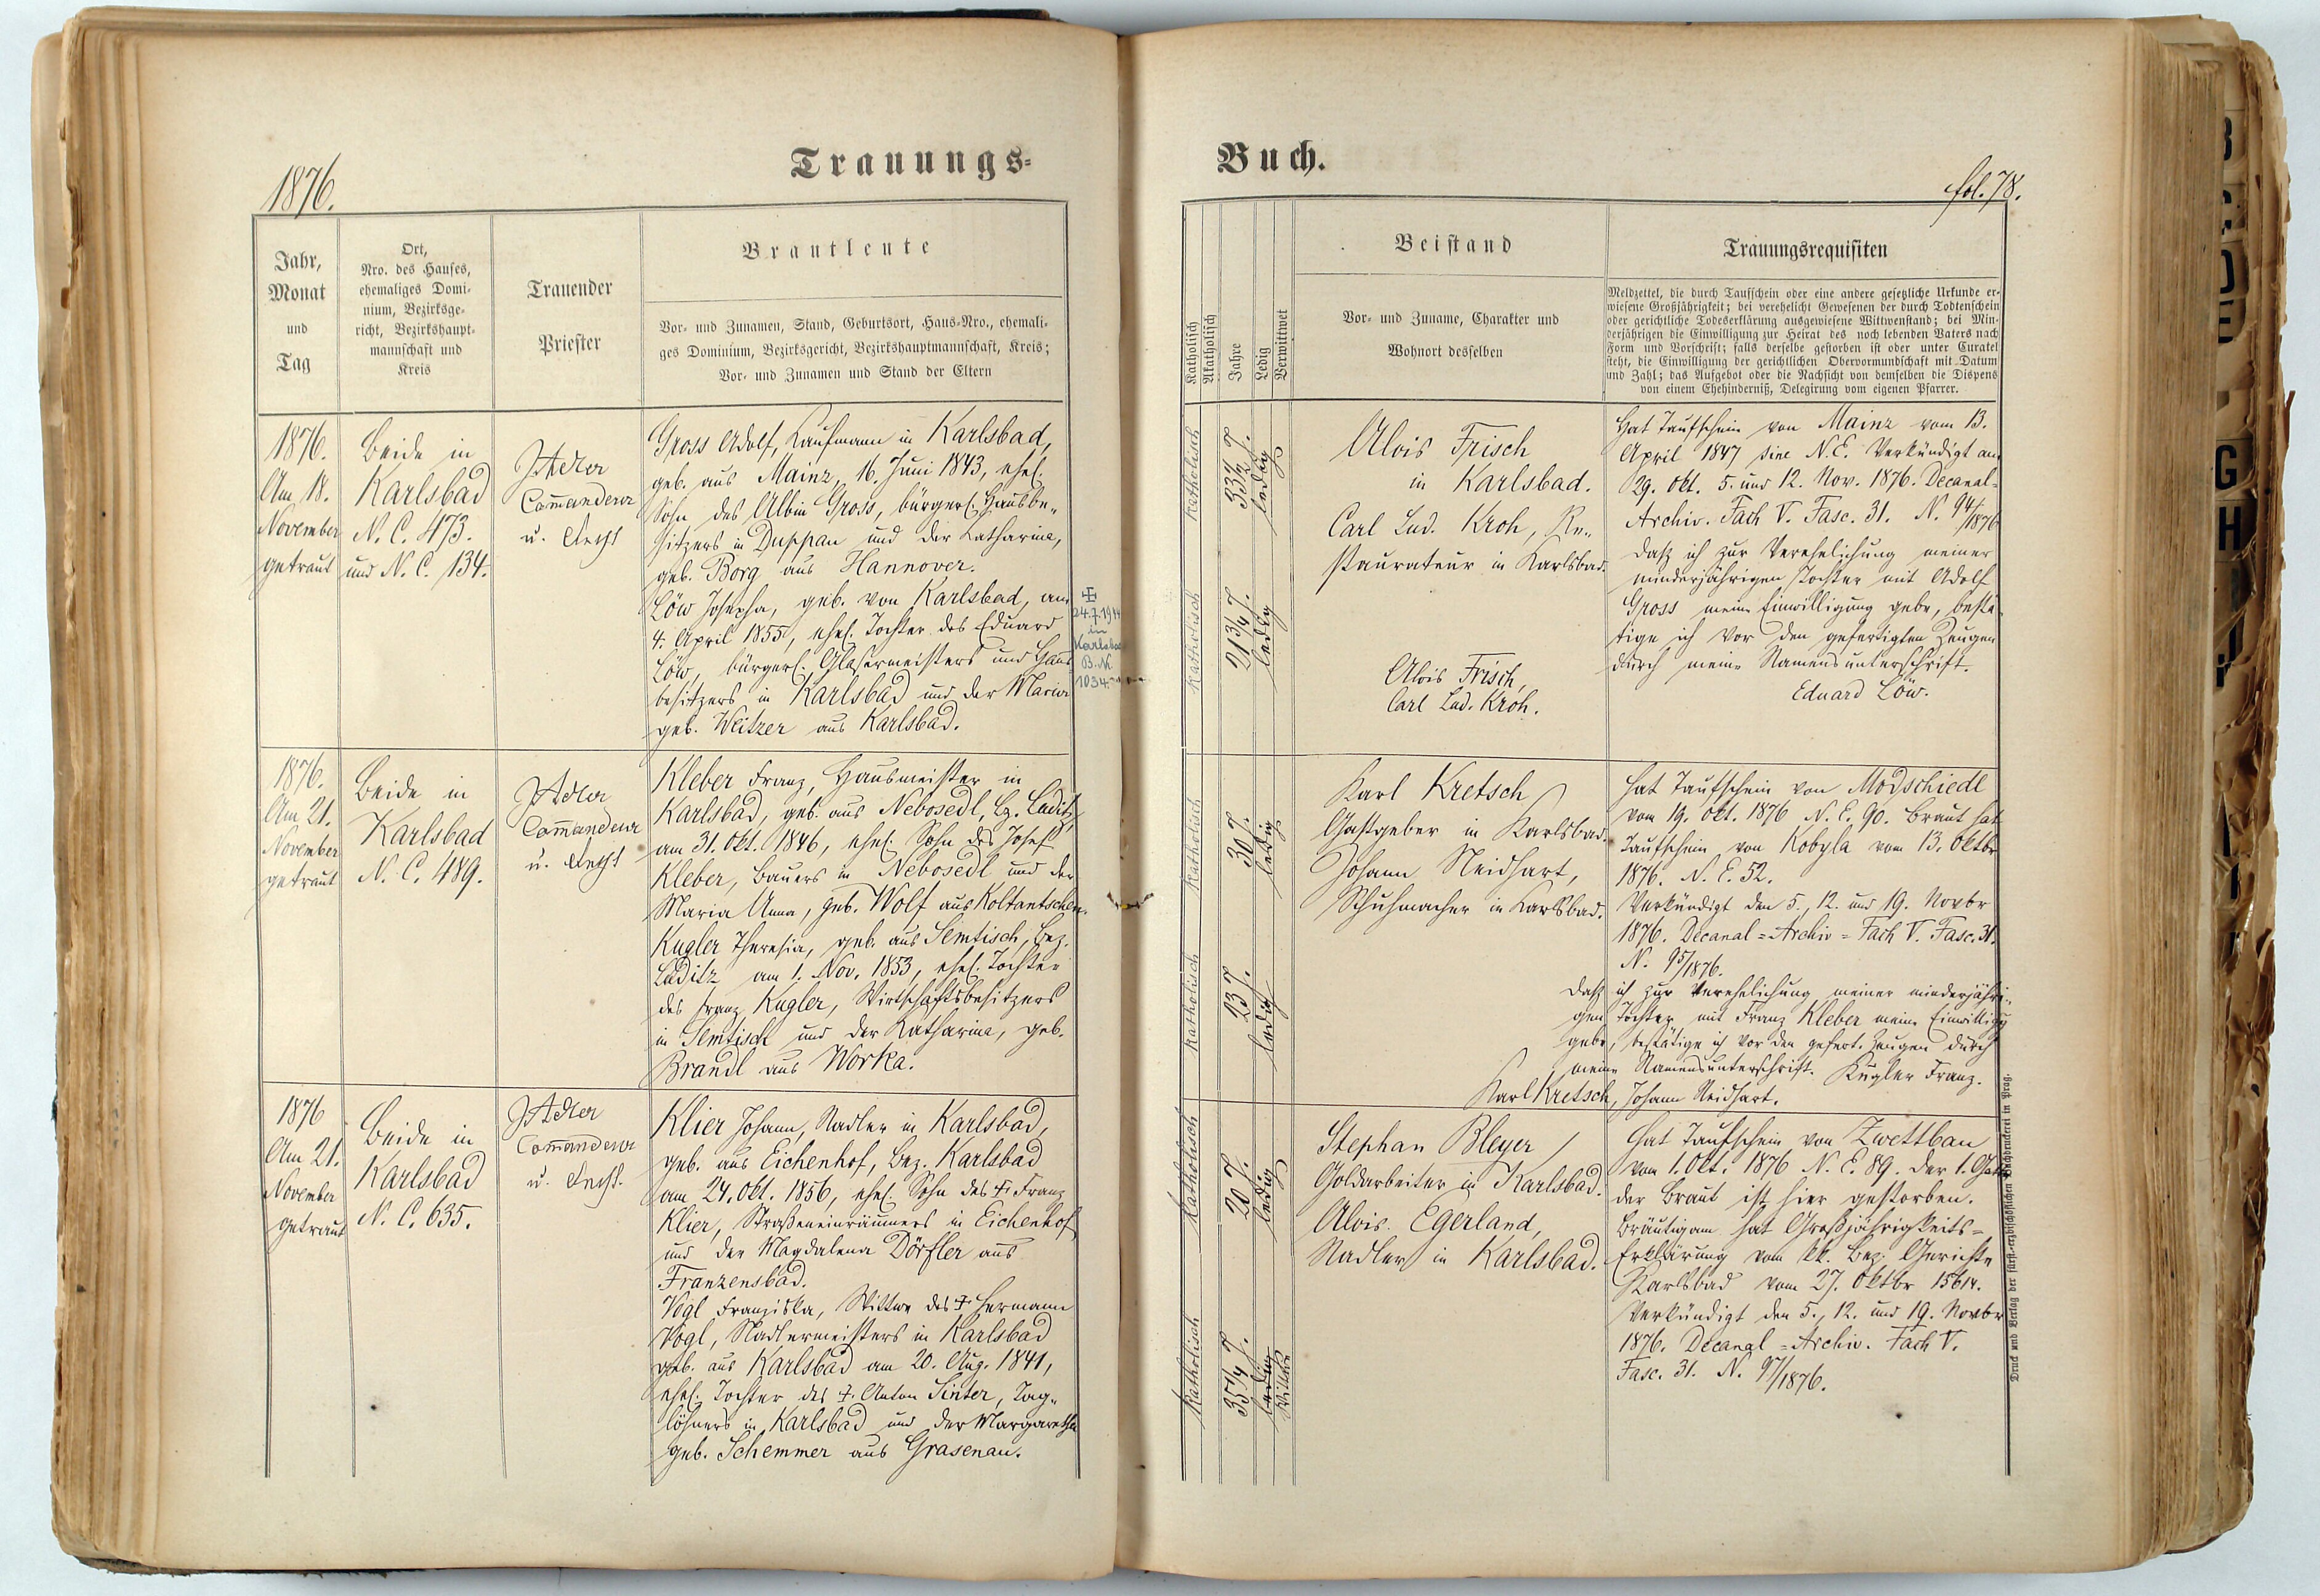 1876.
Trauungs=
Buch.
fol. 78.
Jahr,
Monat
und
Tag
Ort,
Nro. des Hauses,
ehemaliges Domi-
nium, Bezirksge-
richt, Bezirkshaupt-
mannschaft und
Kreis
Trauender
Priester
Brautleute
Vor- und Zunamen, Stand, Geburtsort, Haus-Nro., ehemali-
ges Dominium, Bezirksgericht, Bezirkshauptmannschaft, Kreis;
Vor- und Zunamen und Stand der Eltern
Katholisch
Akatholisch
Jahre
Ledig
Verwittwet
Beistand
Vor- und Zuname, Charakter und
Wohnort desselben
Trauungsrequisiten
Meldzettel, die durch Taufschein oder eine andere gesetzliche Urkunde er-
wiesene Großjährigkeit; bei verehelicht Gewesenen der durch Todtenschein
oder gerichtliche Todeserklärung ausgewiesene Wittwenstand; bei Min-
derjährigen die Einwilligung zur Heirat des noch lebenden Vaters nach
Form und Vorschrift; falls derselbe gestorben ist oder unter Curatel
steht, die Einwilligung der gerichtlichen Obervormundschaft mit Datum
und Zahl; das Aufgebot oder die Nachsicht von demselben die Dispens
von einem Ehehinderniß, Delegirung vom eigenen Pfarrer.
1876.
Am 18.
November
getraut
Beide in
Karlsbad
N. C. 473.
und N. C. 134.
Adler
Com̅andeur
u.
Gross Adolf, Kaufmann in Karlsbad,
geb. aus Mainz, 16. Juni 1843, ehel.
Sohn des Albin Gross, bürgerl. Hausbe-
sitzers in Duppau und der Katharina,
geb. Borg aus Hannover.
Löw Josepha, geb. von Karlsbad, am
4. April 1855, ehel. Tochter des Eduard
Löw, bürgerl. Glasermeisters und Haus
besitzers in Karlsbad und der Maria
geb. Weitzer aus Karlsbad.
24.7.1944
in
Karlsbad
B.N.
1034.
Katholisch
33½ J.
ledig
Katholisch
21¾ J.
ledig
Alois Frisch
in Karlsbad.
Carl Lud. Kroh, Re-
staurateur in Karlsbad.
Alois Frisch,
Carl Lud. Kroh.
Hat Taufschein von Mainz vom 13.
April 1847 sine N.E. Verkündigt am
29. Okt. 5. und 12. Nov. 1876. Decanal-
Archiv. Fach V. Fasc. 31. N. 94/1876
Daß ich zur Verehelichung meiner
minderjährigen Tochter mit Adolf
Gross meine Einwilligung gebe, bestä-
tige ich vor den gefertigten Zeugen
durch meine Namensunterschrift.
Eduard Löw.
1876.
Am 21.
November
getraut
Beide in
Karlsbad
N. C. 489.
Adler
Com̅andeur
u.
Kleber Franz, Hausmeister in
Karlsbad, geb. aus Nebosedl, Bz. Luditz,
am 31. Okt. 1846, ehel. Sohn des Josef
Kleber, Bauers in Nebosedl und der
Maria Anna, geb. Wolf aus Koltantschen.
Kugler Theresia, geb. aus Semtisch, Bez.
Luditz am 1. Nov. 1853, ehel. Tochter
des Franz Kugler, Wirtschaftsbesitzers
in Semtisch und der Katharina, geb.
Brandl aus Worka.
Katholisch
30 J.
ledig
Katholisch
23 J.
ledig
Karl Kretsch
Gastgeber in Karlsbad.
Johann Neidhart,
Schuhmacher in Karlsbad.
Hat Taufschein von Modschiedl
vom 19. Okt. 1876 N. E. 90. Braut hat
Taufschein von Kobyla vom 13. Oktbr
1876. N. E. 52.
Verkündigt den 5., 12. und 19. Novbr
1876. Decanal=Archiv=Fach V. Fasc. 31.
N. 95/1876.
Daß ich zur Verehelichung meiner minderjähri-
gen Tochter mit Franz Kleber meine Einwilligg
gebe, bestätige ich vor den gefert. Zeugen durch
meine Namensunterschrift. Kugler Franz.
Karl Kretsch, Johann Neidhart.
1876
Am 21.
November
getraut
Beide in
Karlsbad
N. C. 635.
Adler
Com̅andeur
u.
Klier Johann, Nadler in Karlsbad,
geb. aus Eichenhof, Bez. Karlsbad
am 24. Okt. 1856, ehel. Sohn des † Franz
Klier, Straßeneinräumers in Eichenhof
und der Magdalena Dörfler aus
Franzensbad.
Vogl Franziska, Wittwe des † Hermann
Vogl, Nadlermeisters in Karlsbad
geb. aus Karlsbad am 20. Aug. 1841,
ehel. Tochter des † Anton Sinter, Tag-
löhners in Karlsbad und der Margaretha
geb. Schemmer aus Grasenau.
Katholisch
20 J.
ledig
Katholisch
35¼ J.
ledig
Wittwe
Stephan Bleyer
Goldarbeiter in Karlsbad.
Alois Egerland,
Nadler in Karlsbad.
Hat Taufschein von Zwettbau
vom 1. Okt. 1876 N. E. 89. Der 1. Gatte
der Braut ist hier gestorben.
Bräutigam hat Großjährigkeits=
Erklärung vom kk. Bez. Gerichte
Karlsbad vom 27. Oktbr 15614.
Verkündigt den 5., 12. und 19. Novbr
1876. Decanal=Archiv. Fach V.
Fasc. 31. N. 97/1876.
Druck und Verlag der fürst-erzbischöflichen Buchdruckerei in Prag.